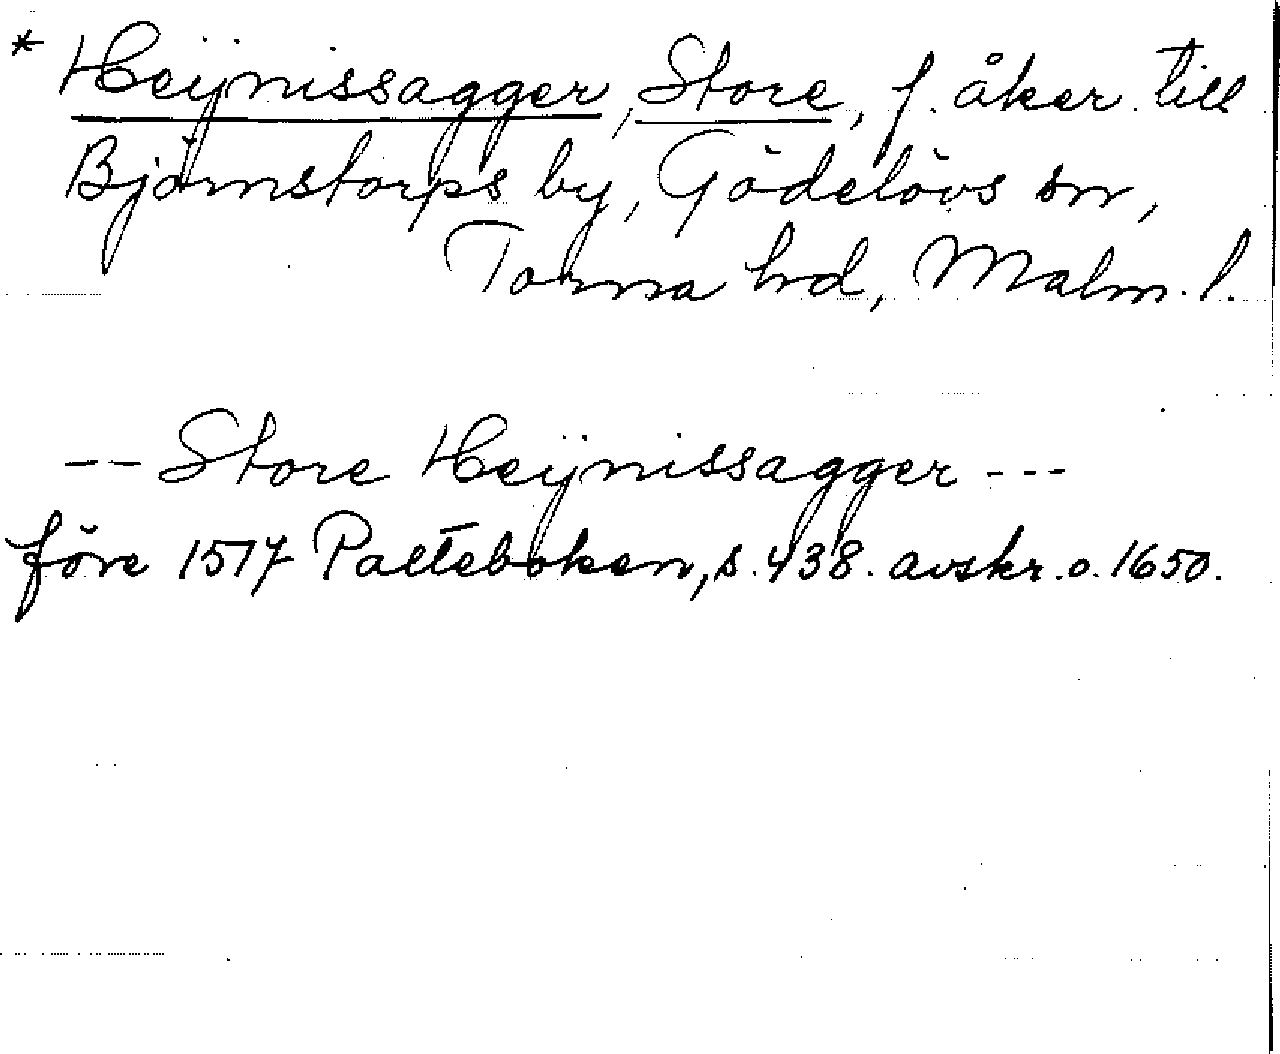 * Heÿnissagger, Store, f. åker till
Björnstorps by, Gödelövs sn,
Torna hd, Malm. l.
-- Store Heÿnissagger ---
före 1517 Palteboken, s. 438. avskr. o. 1650.